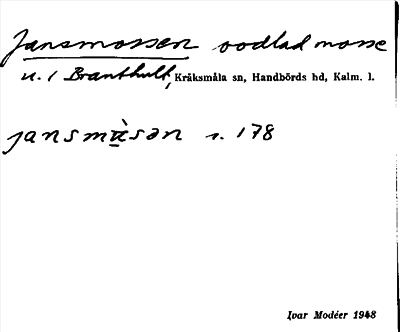 Jansmossen oodlad mosse
u. / Branthult, Kråksmåla sn, Handbörds hd, Kalm. l.
jansmùsən s. 178
Ivar Modéer 1948